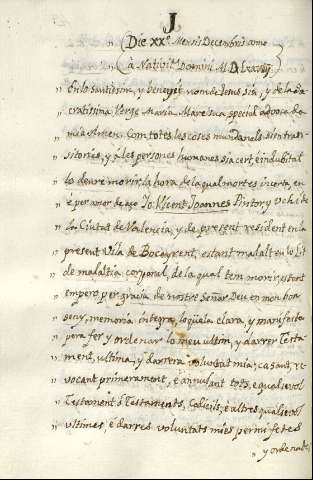 J
Die xx.º Mensis Decembris anno
à Nativit.e Domini M.D.Lxxviiij
En lo santissim, y beneyt nom de Jesus sia, y de la Sa
cratissima Verge Maria Mare sua special advocada
mia Amen. Com totes les coses mundanals sien tran-
sitories, y à les persones humanes sia cert, è indubita
lo deure morir, la hora de la qual mort es incerta, en
è per amor de açò Jo Vicent Joannes Pintor, y Vehi de
la Ciutat de Valencia, y de present resident en la
present Vila de Bocayrent, estant malalt en lo Llit
de malaltia corporal, de la qual tem morir, estant
empero per gracia de nostre Señor Deu en mon bon
seny, memoria integra, loquela clara, y manifesta
pera fer y ordenar lo meu ultim, y darrer Testa-
ment, ultima, y darrera voluntat mia; cassant, re
vocant primerament, è annulant tots, e qualsevol
Testament ò Testaments, Codicils, è altres qualsevol
ultimes è darreres voluntats mies per mi fetes
y ordenades